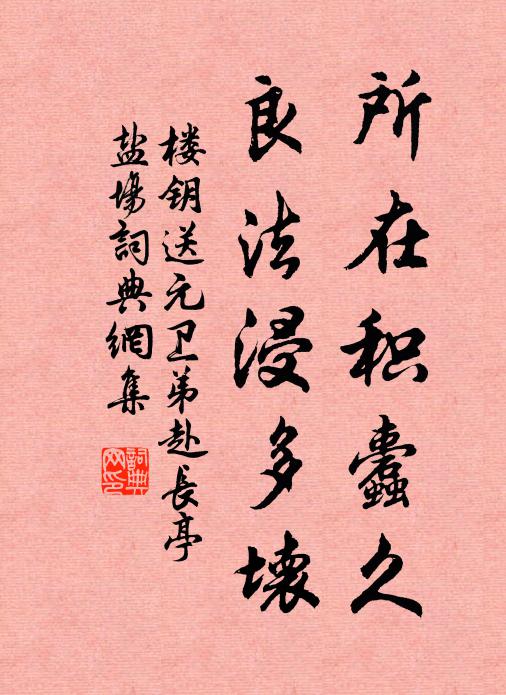 所在积蠹久
良法浸多壊
楼钥送元卫弟赴长亭
盐場詞典網集
詞典
网印